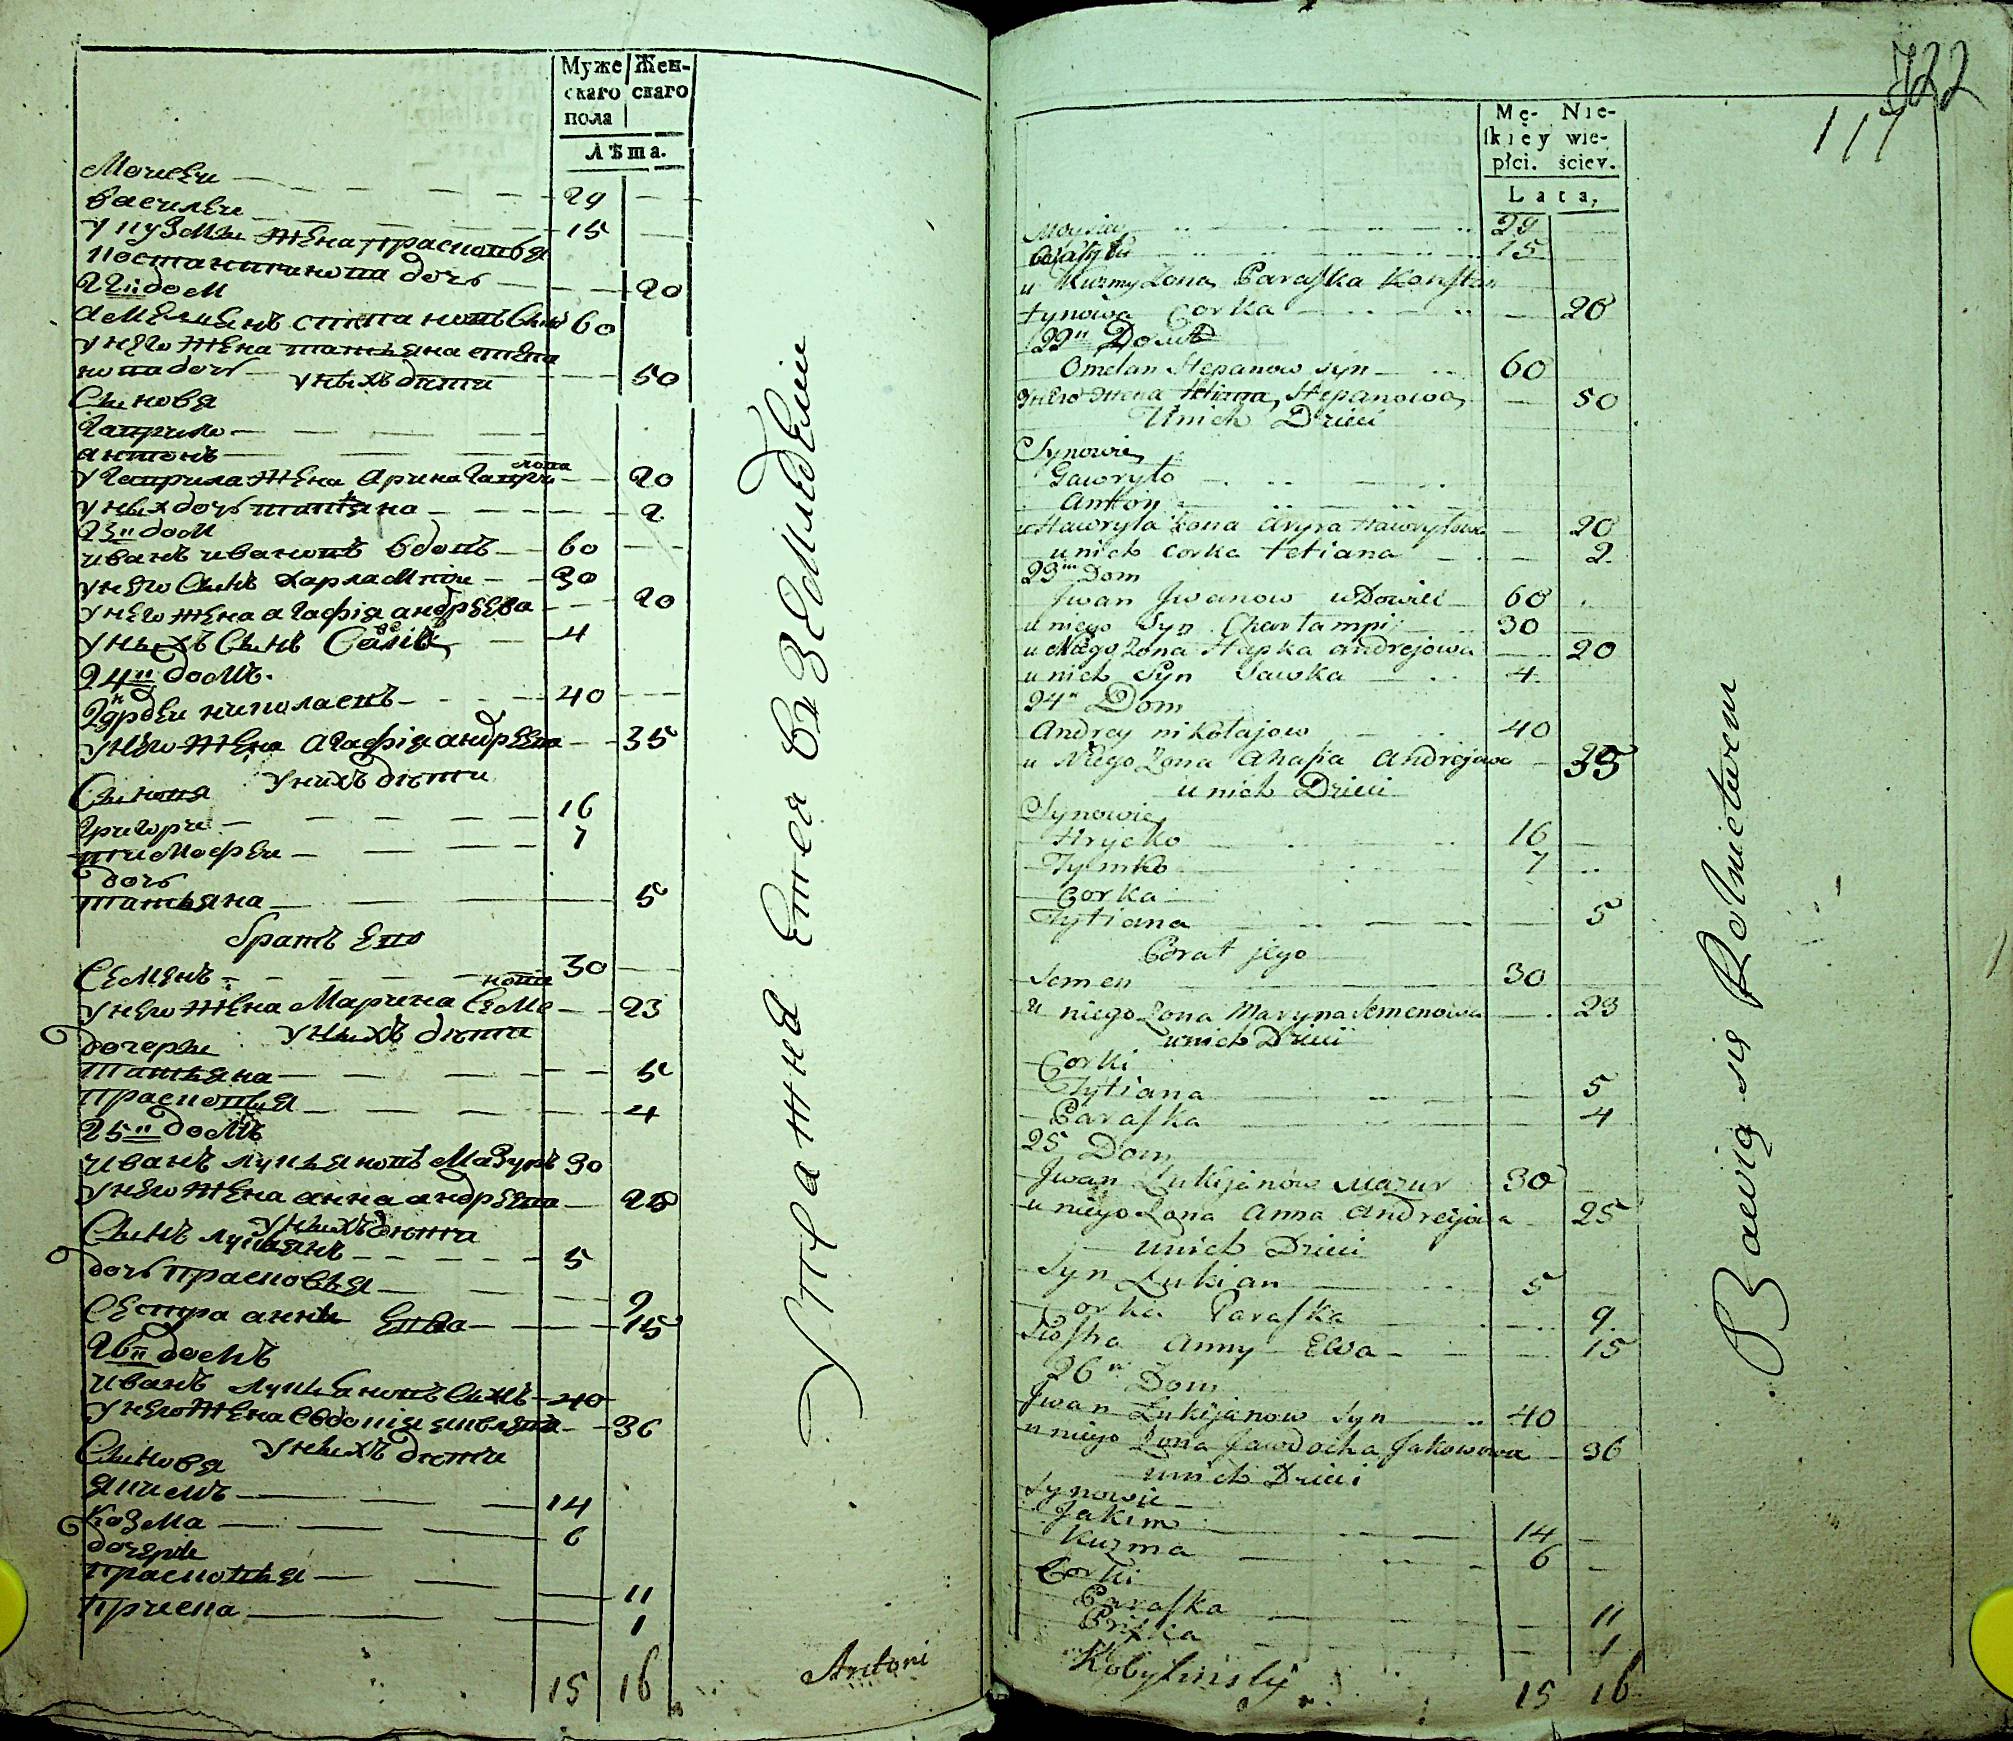 Муже Жен-
скаго скаго
пола
Лѣта.
Моисеи 29
василеи 15
у кузмы жена прасковья
костантинова дочь 20
22й дом
Амелиянъ степановъ сынъ 60
у него жена татьяна степа
нова дочь 50
у ныхъ дѣти
Сыновя
Гаврило
антонъ
у Гаврила жена Арина Гаври
лова 20
у ных дочь татѣяна 2
23й дом
иванъ ивановъ вдовъ 60
у него сынъ харлампіи 30
у него жена агафія андреева 20
у ныхъ сынъ 4
24й домъ.
Андреи николаевъ 40
у него жена агафія андреева 35
у нихъ дѣти
Сыновя
Григори 16
тимофеи 7
дочь
татьяна 5
братъ ево
Семенъ 30
у него жена Марина Семе
нова 23
у ныхъ дѣти
дочеры
татьяна 5
прасковья 4
25й домъ
иванъ лукьяновъ Мазуръ 30
у него жена анна андреева 25
у ныхъ дѣти
Сынъ лукьянъ 5
дочь прасковья 9
Сестра анны Ева 15
26й домъ
иванъ лукьяновъ сынъ 40
у него жена Евдокія яковлева 36
у ныхъ дѣти
Сыновя
якимъ 14
козма 6
дочеры
прасковья 11
приска 1
15 16
Упражняется въ Земледѣліи
Antoni
722
117
Mę- Nie-
ſkiey wie-
płci. ściey.
Lata,
Moysiey 29
Wasyly 15
u Kuzmy Zona Paraſka Konſtan
tynowa Corka 20
22й Dom
Omelan Stepanow syn 60
Stepanowa 50
U nich Dzieci
Synowie
Gawryło
Anton
u Hawryła Zona Aryna Hawryłowa 20
u nich corka tetiana 2
23й Dom
Jwan Jwanow wDowiec 60
u niego Syn Charłampi 30
u Niego Zona Hapka andrejowa 20
u nich Syn Sawka 4
24й Dom
Andrey nikołajow 40
u Niego Zona Ahafia Andrejowa 35
u nich Dzieci
Synowie
Hryćko 16
Tymko 7
Corka
Tytiana 5
Brat jego
Semen 30
u niego Zona Maryna Semenowa 23
u nich Dzieci
Corki
Tytiana 5
Paraſka 4
25 Dom
Jwan Łukijanow Mazur 30
u niego Zona Anna Andrejowa 25
u nich Dzieci
Syn Łukian 5
Corka Paraſka 9
Sioſtra Anny Ewa 15
26й Dom
Jwan Łukijanow Syn 40
u niego Zona Jawdocha Jakowowa 36
u nich Dzieci
Synowie
Jakim 14
Kuzma 6
Corki
Paraſka 11
Priska 1
Kobylinsky
15 16
Bawią się Rolnictwem